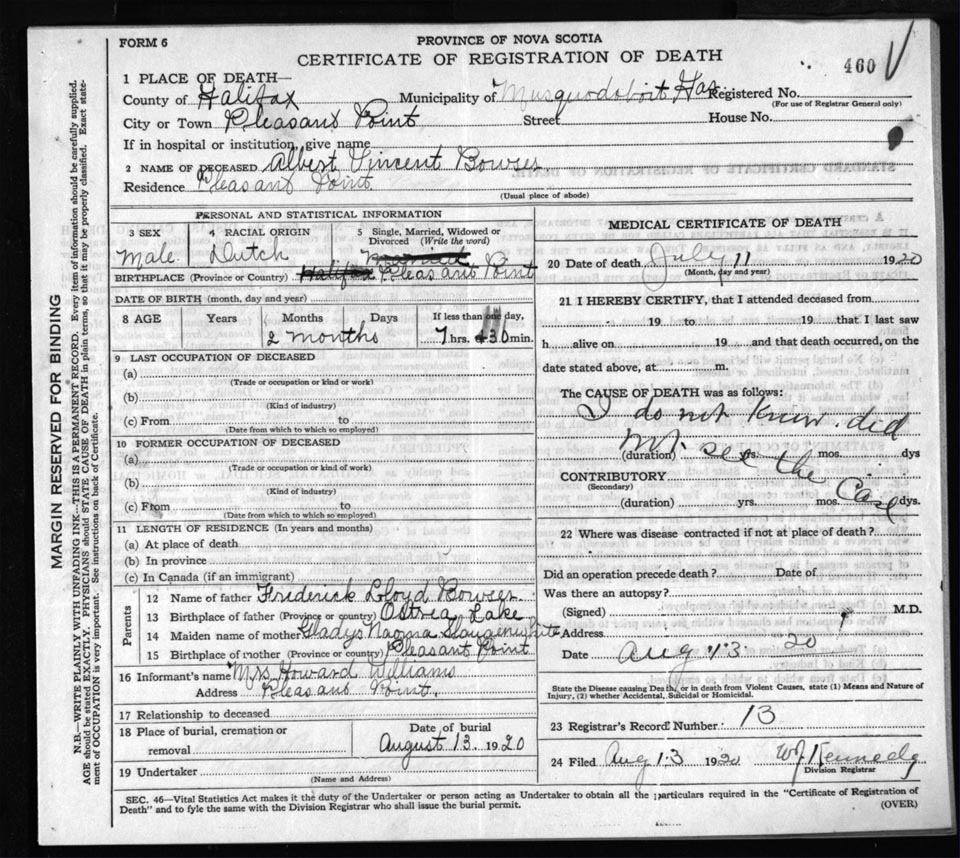 FORM 6
PROVINCE OF NOVA SCOTIA
CERTIFICATE OF REGISTRATION OF DEATH
460
1 PLACE OF DEATH—
County of Halifax Municipality of Musquodoboit Har Registered No.
(For use of Registrar General only)
City or Town Pleasant Point Street House No.
If in hospital or institution, give name
2 NAME OF DECEASED Albert Vincent Bowser
Residence Pleasant Point
(Usual place of abode)
PERSONAL AND STATISTICAL INFORMATION
3 SEX 4 RACIAL ORIGIN 5 Single, Married, Widowed or Divorced (Write the word)
Male Dutch
BIRTHPLACE (Province or Country) Halifax Pleasant Point
DATE OF BIRTH (month, day and year)
8 AGE Years Months Days If less than one day,
2 months 7 hrs. 30 min.
9 LAST OCCUPATION OF DECEASED
(a)
(Trade or occupation or kind or work)
(b)
(Kind of industry)
(c) From to
(Date from which to which so employed)
10 FORMER OCCUPATION OF DECEASED
(a)
(Trade or occupation or kind of work)
(b)
(Kind of industry)
(c) From to
(Date from which to which so employed)
11 LENGTH OF RESIDENCE (In years and months)
(a) At place of death
(b) In province
(c) In Canada (if an immigrant)
Parents
12 Name of father Frederick Lloyd Bowser
13 Birthplace of father (Province or country) Ostrea Lake
14 Maiden name of mother Gladys Naoma Slaugenwhite
15 Birthplace of mother (Province or country) Pleasant Point
16 Informant's name Mrs Howard Williams
Address Pleasant Point.
17 Relationship to deceased
18 Place of burial, cremation or removal
Date of burial
August 13 1920
19 Undertaker
(Name and Address)
MEDICAL CERTIFICATE OF DEATH
20 Date of death July 11 1920
(Month, day and year)
21 I HEREBY CERTIFY, that I attended deceased from
19 to 19 that I last saw
h alive on 19 and that death occurred, on the
date stated above, at m.
The CAUSE OF DEATH was as follows:
I do not know. did
not see the Case
(duration) yrs. mos. dys
CONTRIBUTORY
(Secondary)
(duration) yrs. mos. dys.
22 Where was disease contracted if not at place of death?
Did an operation precede death? Date of
Was there an autopsy?
(Signed) M.D.
Address
Date Aug 13 20
State the Disease causing Death, or in death from Violent Causes, state (1) Means and Nature of
Injury, (2) whether Accidental, Suicidal or Homicidal.
23 Registrar's Record Number: 13
24 Filed Aug 13 1920 W J Kennedy
Division Registrar
SEC. 46—Vital Statistics Act makes it the duty of the Undertaker or person acting as Undertaker to obtain all the particulars required in the "Certificate of Registration of
Death" and to fyle the same with the Division Registrar who shall issue the burial permit.
(OVER)
MARGIN RESERVED FOR BINDING
N.B.—WRITE PLAINLY WITH UNFADING INK—THIS IS A PERMANENT RECORD. Every item of information should be carefully supplied.
AGE should be stated EXACTLY. PHYSICIANS should STATE CAUSE OF DEATH in plain terms, so that it may be properly classified. Exact state-
ment of OCCUPATION is very important. See instructions on back of Certificate.